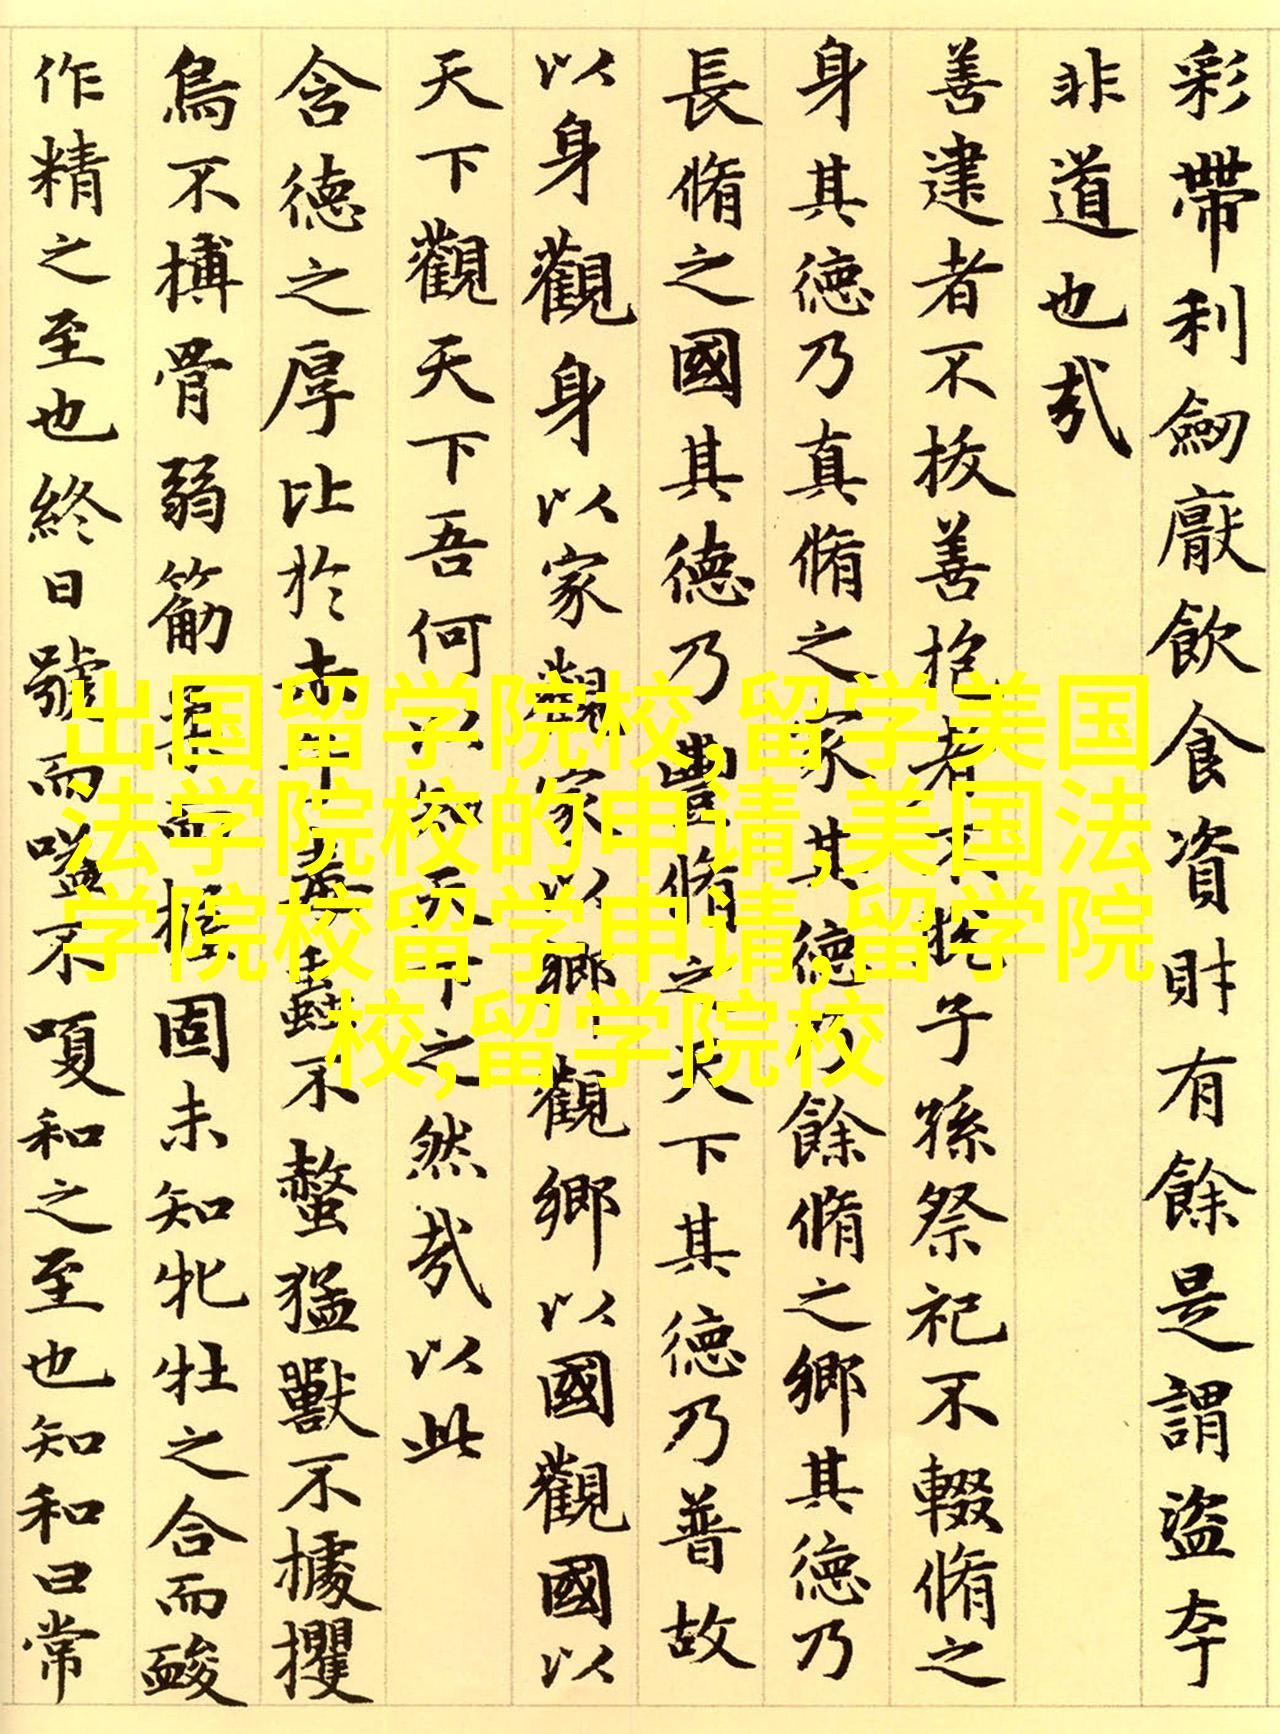 彩帶利劒厭飲食資財有餘是謂盜夸
非道也哉
善建者不拔善抱者不脫子孫祭祀不輟脩之
身其德乃真脩之家其德乃餘脩之鄉其德乃
長脩之國其德乃豐脩之天下其德乃普故
以身觀身以家觀家以鄉觀鄉以國觀國以
天下觀天下吾何以知天下之然哉以此
含德之厚比於赤子毒蟲不螫猛獸不據攫
鳥不搏骨弱筋柔而握固未知牝牡之合而酸
作精之至也終日號而嗌不嗄和之至也知和曰常
出国留学院校,留学美国
法学院校的申请,美国法
学院校留学申请,留学院
校,留学院校